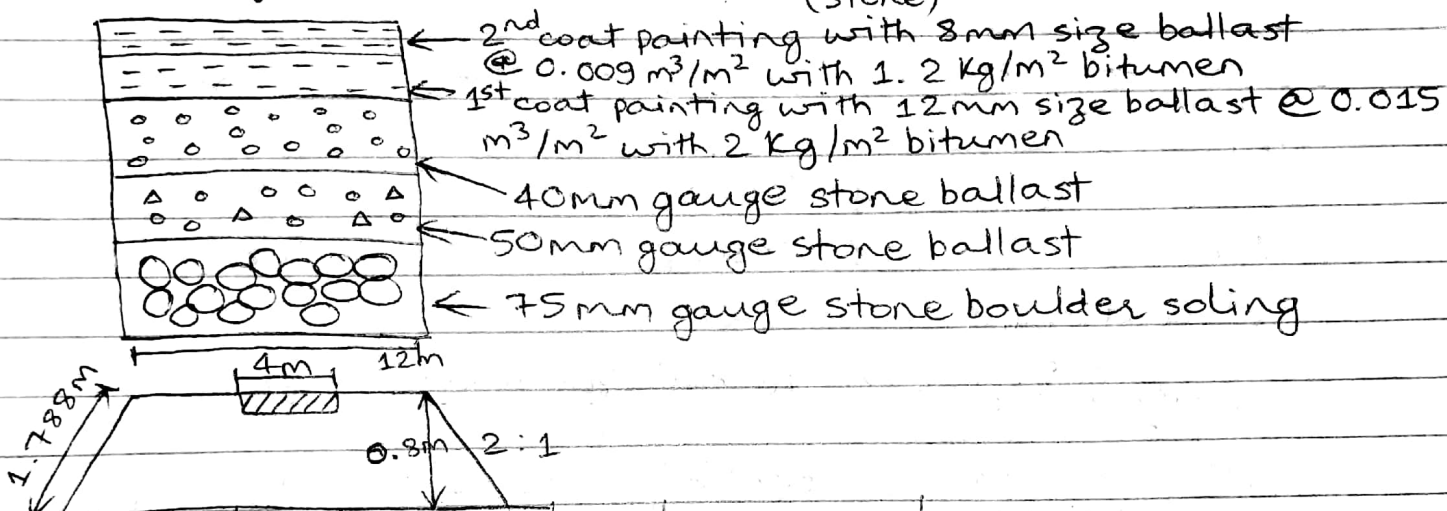 (stone)
2nd coat painting with 8mm size ballast
@ 0.009 m³/m² with 1.2 kg/m² bitumen
1st coat painting with 12mm size ballast @ 0.015
m³/m² with 2 kg/m² bitumen
40mm gauge stone ballast
50mm gauge stone ballast
75mm gauge stone boulder soling
12m
4m
1.788m
0.8m
2:1